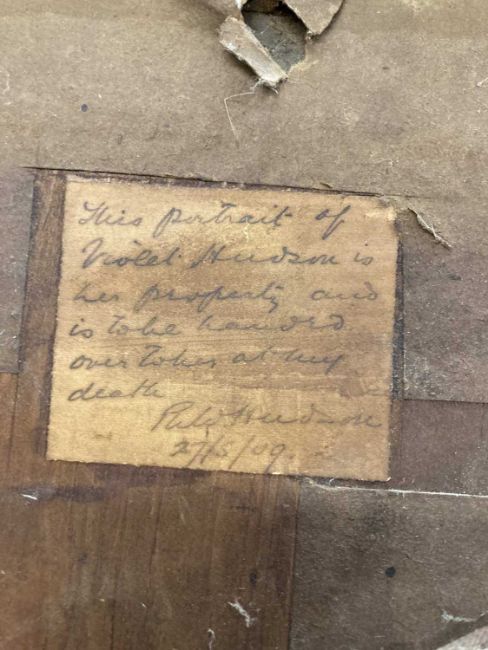 This portrait of
Violet Hudson is
her property and
is to be handed
over to her at my
death
Hudson
27/5/09.